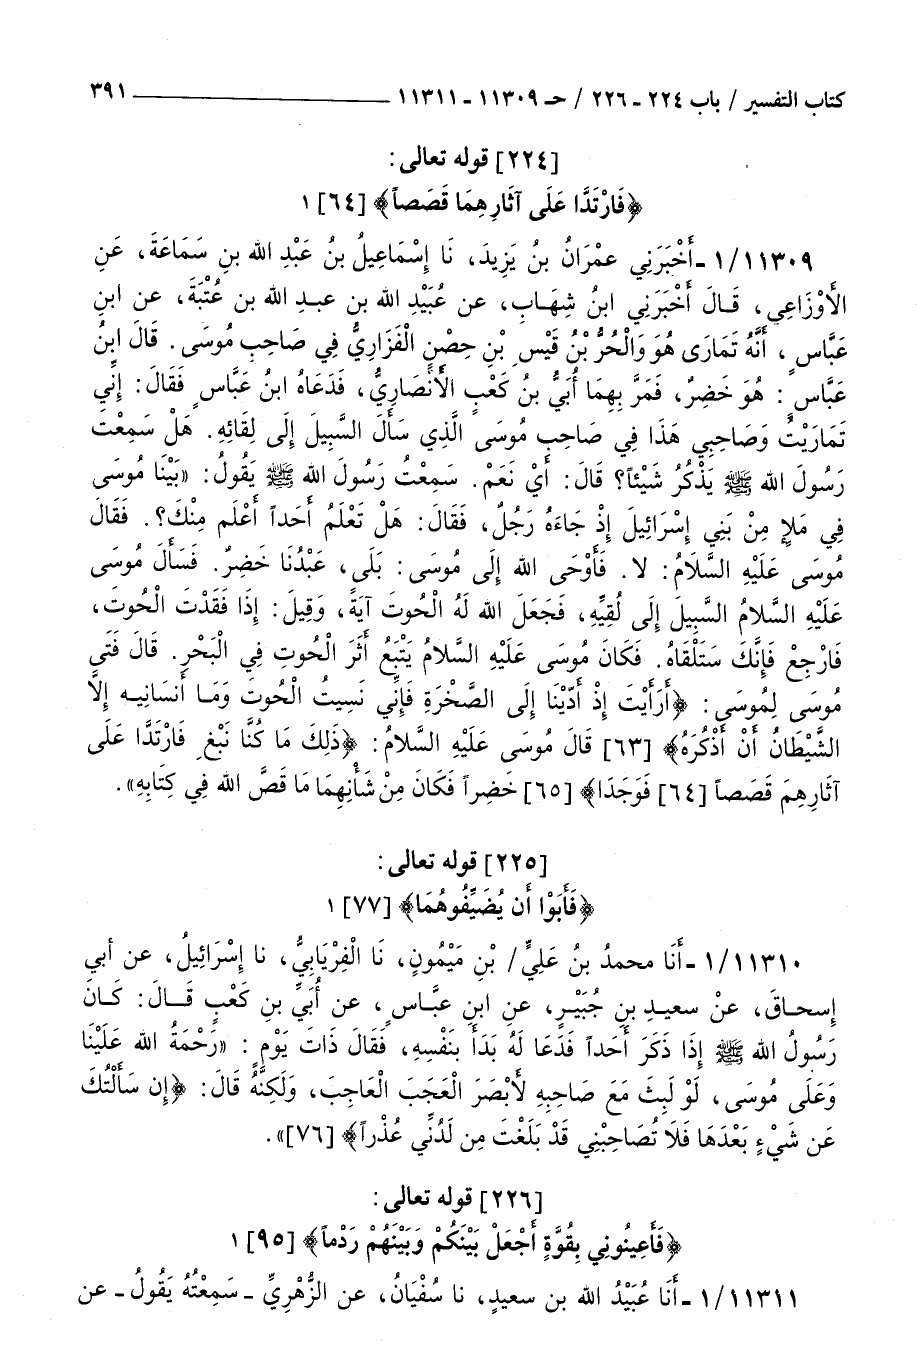 كتاب التفسير / باب ٢٢٤ ـ ٢٢٦ / حـ ١١٣٠٩ ـ ١١٣١١ ـــــــــــــــــــــ ٣٩١
[٢٢٤] قوله تعالى:
﴿فَارْتَدَّا عَلَى آثَارِهِمَا قَصَصاً﴾ [٦٤] ١
١/١١٣٠٩ ـ أَخْبَرَنِي عمْرَانُ بنُ يَزِيدَ، نَا إِسْمَاعِيلُ بنُ عَبْدِ الله بنِ سَمَاعَةَ، عَنِ
الأَوْزَاعِي، قَـالَ أَخْبَرَنِي ابنُ شِهَابٍ، عن عُبَيْدِ الله بن عبـدِ الله بن عُتْبَةَ، عن ابنِ
عَبَّاسٍ، أَنَّهُ تَمَارَى هُوَ وَالْحُرُّ بْنُ قَيْسِ بْنِ حِصْنٍ الْفَزَارِيُّ فِي صَاحِبِ مُوسَى. قَالَ ابنُ
عَبَّاسٍ: هُوَ خَضِرٌ، فَمَرَّ بِهِمَا أُبَيُّ بنُ كَعْبٍ الأَنْصَارِيُّ، فَدَعَاهُ ابنُ عَبَّاسٍ فَقَالَ: إِنِّي
تَمَارَيْتُ وَصَاحِبِي هَذَا فِي صَاحِبِ مُوسَى الَّذِي سَأَلَ السَّبِيلَ إِلَى لِقَائِهِ. هَلْ سَمِعْتَ
رَسُولَ الله ﷺ يَذْكُرُ شَيْئاً؟ قَالَ: أَيْ نَعَمْ. سَمِعْتُ رَسُولَ الله ﷺ يَقُولُ: «بَيْنَا مُوسَى
فِي مَلإٍ مِنْ بَنِي إِسْرَائِيلَ إِذْ جَاءَهُ رَجُلٌ، فَقَالَ: هَلْ تَعْلَمُ أَحَداً أَعْلَم مِنْكَ؟. فَقَالَ
مُوسَى عَلَيْهِ السَّلَامُ: لا. فَأَوْحَى الله إِلَى مُوسَى: بَلَى، عَبْدُنَا خَضِرٌ. فَسَأَلَ مُوسَى
عَلَيْهِ السَّلَامُ السَّبِيلَ إِلَى لُقِيِّهِ، فَجَعَلَ الله لَهُ الْحُوتَ آيَةً، وَقِيلَ: إِذَا فَقَدْتَ الْحُوتَ،
فَارْجِعْ فَإِنَّكَ سَتَلْقَاهُ. فَكَانَ مُوسَى عَلَيْهِ السَّلَامُ يَتْبَعُ أَثَرَ الْحُوتِ فِي الْبَحْرِ. قَالَ فَتَى
مُوسَى لِمُوسَى: ﴿أَرَأَيْتَ إِذْ أَدَّيْنَا إِلَى الصَّخْرَةِ فَإِنِّي نَسِيتُ الْحُوتَ وَمَـا أَنْسَانِيـه إِلاَّ
الشَّيْطَانُ أَنْ أَذْكُرَهُ﴾ [٦٣] قَالَ مُوسَى عَلَيْهِ السَّلَامُ: ﴿ذَلِكَ مَا كُنَّا نَبْغِ فَارْتَدَّا عَلَى
آثَارِهِمَ قَصَصاً [٦٤] فَوَجَدَا﴾ [٦٥] خَضِراً فَكَانَ مِنْ شَأْنِهِمَا مَا قَصَّ الله فِي كِتَابِهِ».
[٢٢٥] قوله تعالى:
﴿فَأَبَوْا أَن يُضَيِّفُوهُمَا﴾ [٧٧] ١
١/١١٣١٠ ـ أَنَا محمدُ بنُ عَلِيِّ/ بْنِ مَيْمُونٍ، نَا الْفِرْيَابِيُّ، نا إِسْرَائِيلُ، عن أَبي
إِسحـاقَ، عَنْ سعيـدِ بنِ جُبَيْـرٍ، عن ابنِ عبَّـاسٍ، عن أُبَيِّ بنِ كَعْبٍ قَـالَ: كَـانَ
رَسُولُ الله ﷺ إِذَا ذَكَرَ أَحَداً فَدَعَا لَهُ بَدَأَ بِنَفْسِهِ، فَقَالَ ذَاتَ يَوْمٍ: «رَحْمَةُ الله عَلَيْنَا
وَعَلَى مُوسَى، لَوْ لَبِثَ مَعَ صَاحِبِهِ لأَبْصَرَ الْعَجَبَ الْعَاجِبَ، وَلَكِنَّهُ قَالَ: ﴿إِن سَأَلْتُكَ
عَن شَيْءٍ بَعْدَهَا فَلَا تُصَاحِبْنِي قَدْ بَلَغْتَ مِن لَدُنِّي عُذْراً﴾ [٧٦]».
[٢٢٦] قوله تعالى:
﴿فَأَعِينُونِي بِقُوَّةٍ أَجْعَلْ بَيْنَكُمْ وَبَيْنَهُمْ رَدْماً﴾ [٩٥] ١
١/١١٣١١ ـ أَنَا عُبَيْدُ الله بن سعيدٍ، نا سُفْيَانُ، عن الزُّهْرِيِّ ـ سَمِعْتُهُ يَقُولُ ـ عن